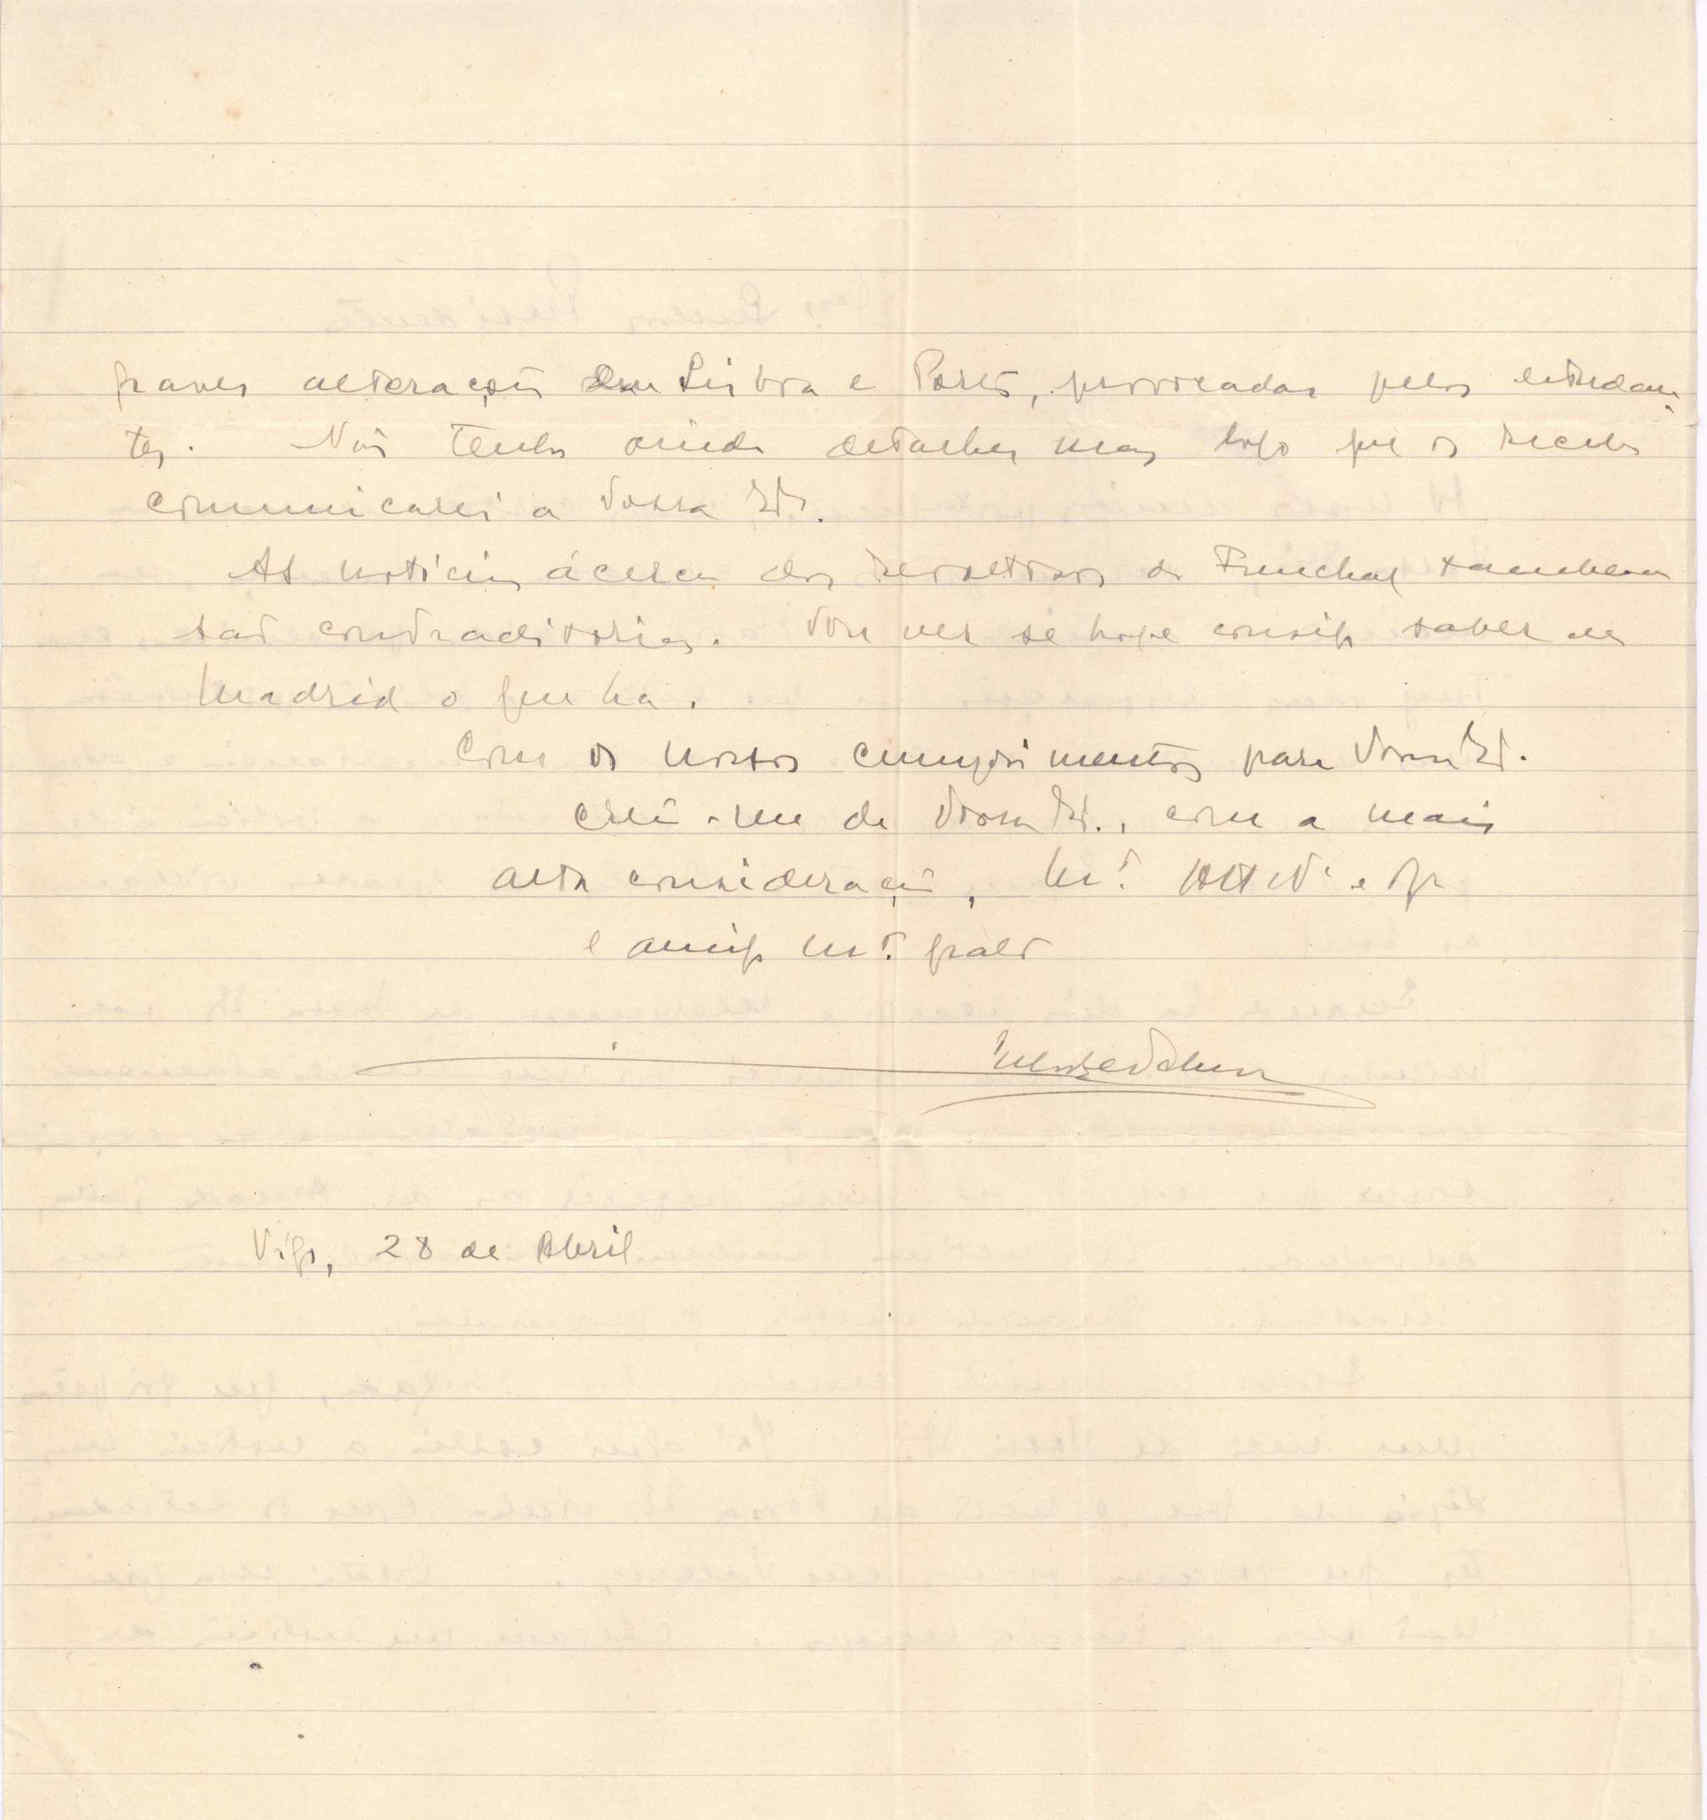 graves alterações em Lisboa e Porto, provocadas pelos estudan-
tes. Não tenho ainda detalhes mas logo que os receba
comunicarei a Vossa Exª.
As noticias ácerca dos revoltosos do Funchal tambem
são contraditorias. Vou ver se hoje consigo saber de
Madrid o que ha.
Com os nossos cumprimentos para Vossa Exª.
creia-me de Vossa Exª., com a mais
alta consideração, Mtº. Attº Vº e
e amigo Mtº. grato
Vigo, 28 de Abril